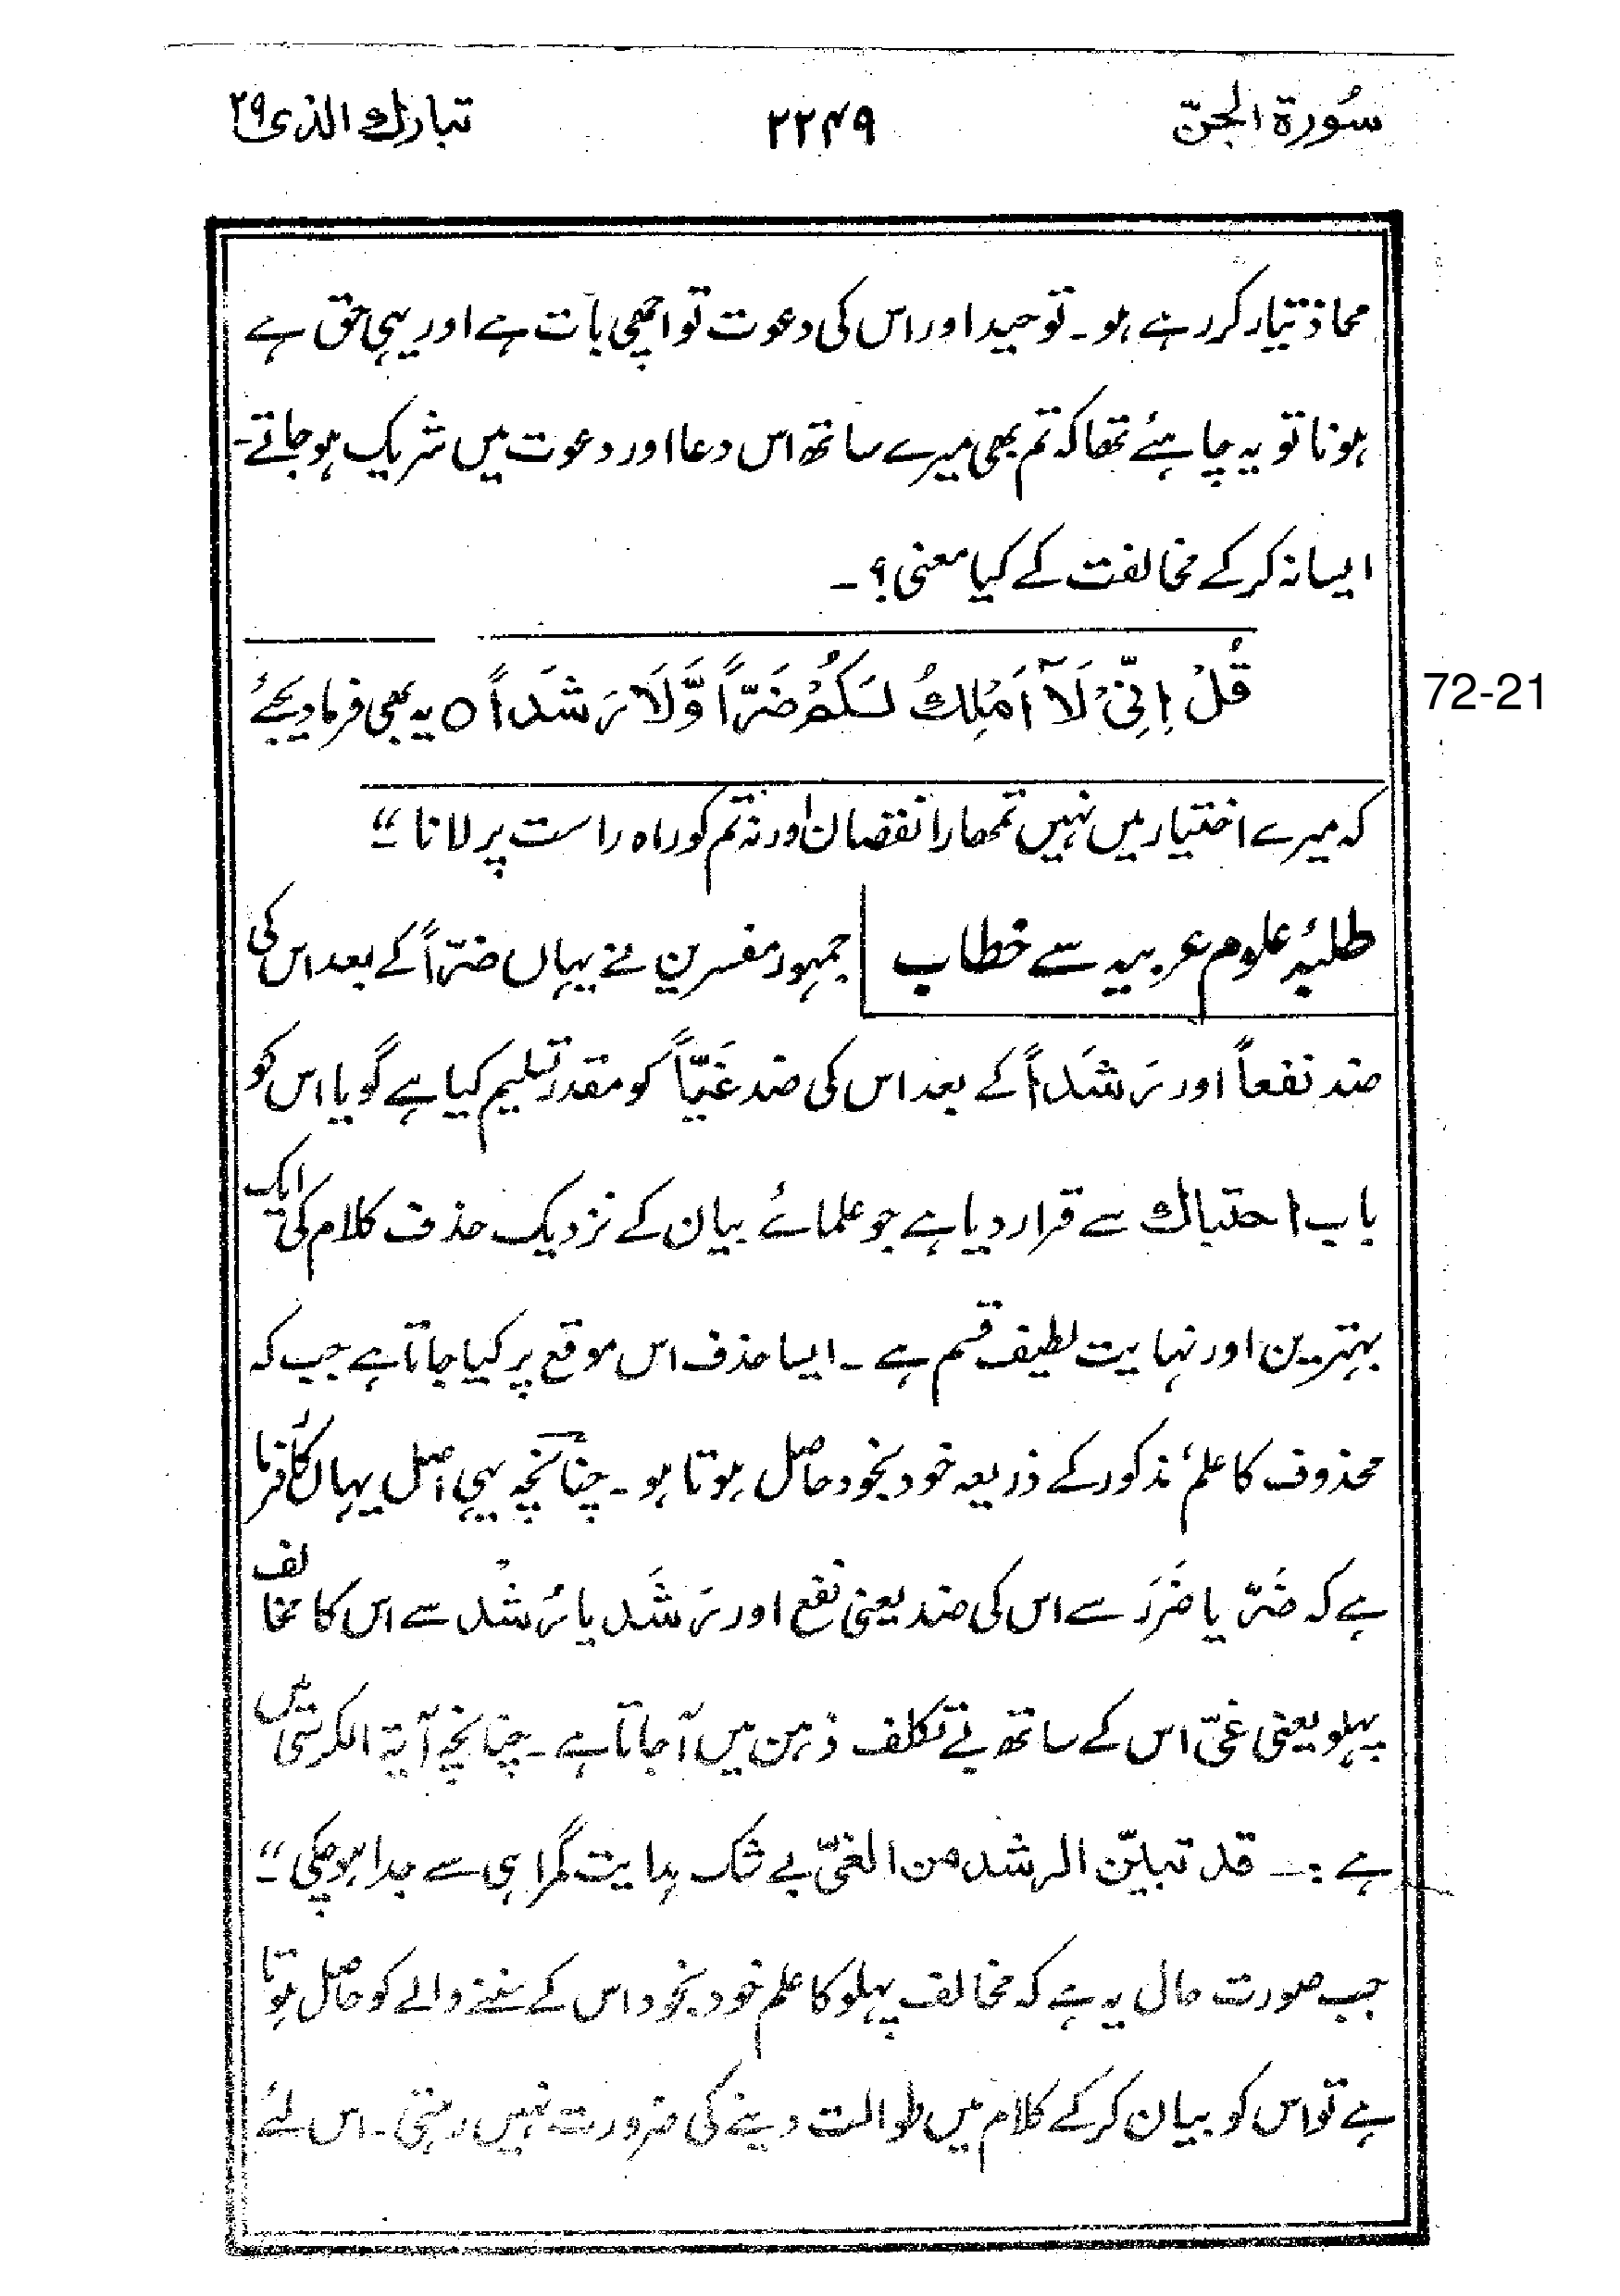 سُورة الجنّ ۲۲۴۹ تبارك الذی ۲۹
محاذ تیار کر رہے ہو۔ توحید اور اس کی دعوت تو اچھی بات ہے اور یہی حق ہے
ہونا تو یہ چاہئے تھا کہ تم بھی میرے ساتھ اس دعا اور دعوت میں شریک ہو جاتے۔
ایسا نہ کر کے مخالفت کے کیا معنی؟۔
قُلْ اِنِّیْ لَآ اَمْلِكُ لَـكُمْ ضَرّاً وَّلَا رَشَداً ○ یہ بھی فرما دیجئے
72-21
کہ میرے اختیار میں نہیں تمھارا نقصان اور نہ تم کو راہ راست پر لانا "۔
طلبۂ علوم عربیہ سے خطاب جمہور مفسرین نے یہاں ضرّاً کے بعد اس کی
ضد نفعاً اور رَشَداً کے بعد اس کی ضد غَیّاً کو مقدر تسلیم کیا ہے گویا اس کو
باب احتباك سے قرار دیا ہے جو علمائے بیان کے نزدیک حذف کلام کی ایک
بہترین اور نہایت لطیف قسم ہے۔ ایسا حذف اس موقع پر کیا جاتا ہے جب کہ
محذوف کا علم مذکور کے ذریعہ خود بخود حاصل ہوتا ہو۔ چنانچہ یہی اصل یہاں کارفرما
ہے کہ ضَرّ یا ضَرَر سے اس کی ضد یعنی نفع اور رَشَد یا رُشْد سے اس کا مخالف
پہلو یعنی غَیّ اس کے ساتھ بے تکلف ذہن میں آجاتا ہے۔ چنانچہ آیۃ الکرسی میں
ہے :۔ قد تبیّن الرشد من الغیّ بے شک ہدایت گمراہی سے جدا ہو چکی "۔
جب صورت حال یہ ہے کہ مخالف پہلو کا علم خود بخود اس کے سننے والے کو حاصل ہوتا
ہے تو اس کو بیان کر کے کلام میں طوالت دینے کی ضرورت نہیں رہتی۔ اس لئے